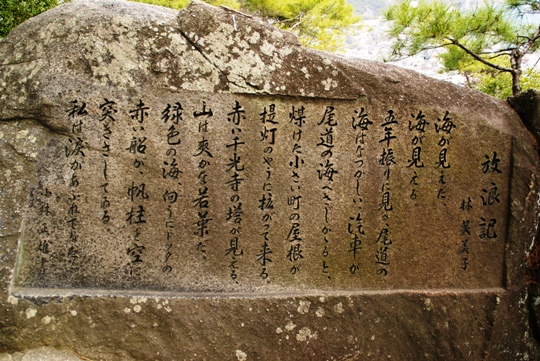 放浪記
林芙美子
海が見えた、
海が見える
五年振りに見る尾道の
海はなつかしい、汽車が
尾道の海へさしかゝると、
煤けた小さい町の屋根が
提灯のやうに拡がって来る
赤い千光寺の塔が見える、
山は爽かな若葉だ、
緑色の海、向うにドックの
赤い船が、帆柱を空に
突きさしてゐる
私は涙があふれてゐた、
小林正雄書